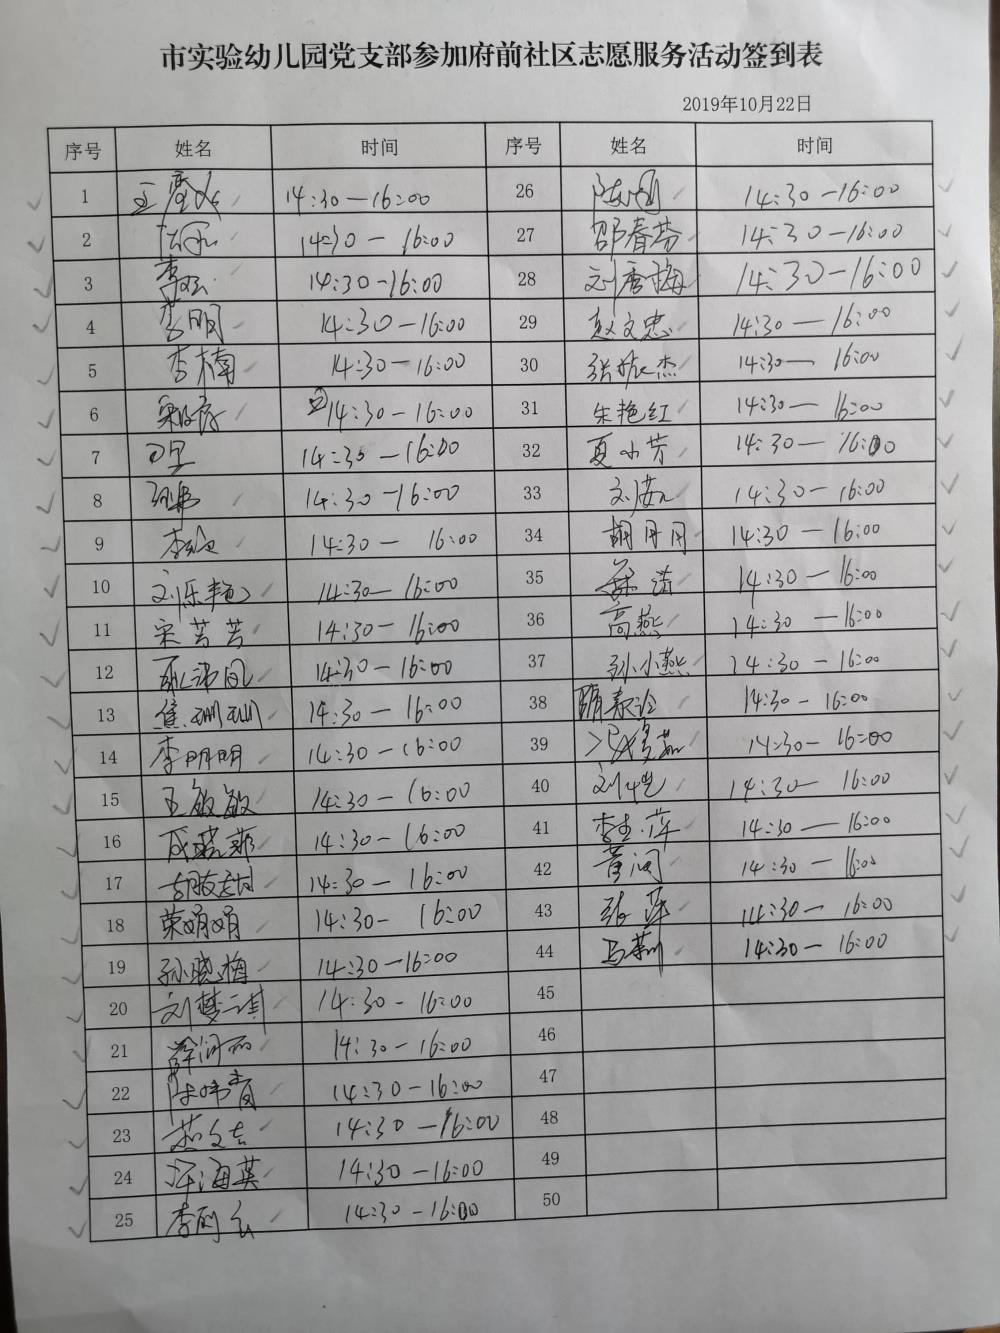 市实验幼儿园党支部参加府前社区志愿服务活动签到表
2019年10月22日
序号 姓名 时间 序号 姓名 时间
1 14:30—16:00 26 14:30—16:00
2 14:30—16:00 27 邵春芬 14:30—16:00
3 14:30-16:00 28 刘唐梅 14:30-16:00
4 李明 14:30—16:00 29 赵文忠 14:30—16:00
5 李楠 14:30—16:00 30 张振杰 14:30—16:00
6 14:30-16:00 31 朱艳红 14:30—16:00
7 14:30—16:00 32 夏小芳 14:30—16:00
8 14:30-16:00 33 14:30—16:00
9 14:30—16:00 34 胡丹丹 14:30—16:00
10 刘乐艳 14:30—16:00 35 14:30—16:00
11 宋芳芳 14:30—16:00 36 高燕 14:30—16:00
12 14:30—16:00 37 孙小燕 14:30—16:00
13 焦珊珊 14:30—16:00 38 14:30-16:00
14 李明明 14:30—16:00 39 14:30—16:00
15 王敏敏 14:30—16:00 40 刘恺 14:30—16:00
16 成晓菲 14:30-16:00 41 李生萍 14:30—16:00
17 14:30—16:00 42 黄润 14:30—16:00
18 荣娟娟 14:30-16:00 43 张萍 14:30—16:00
19 孙晓梅 14:30-16:00 44 马莉 14:30—16:00
20 刘梦琪 14:30-16:00 45
21 薛润丽 14:30-16:00 46
22 14:30-16:00 47
23 14:30-16:00 48
24 许海英 14:30-16:00 49
25 李丽云 14:30-16:00 50